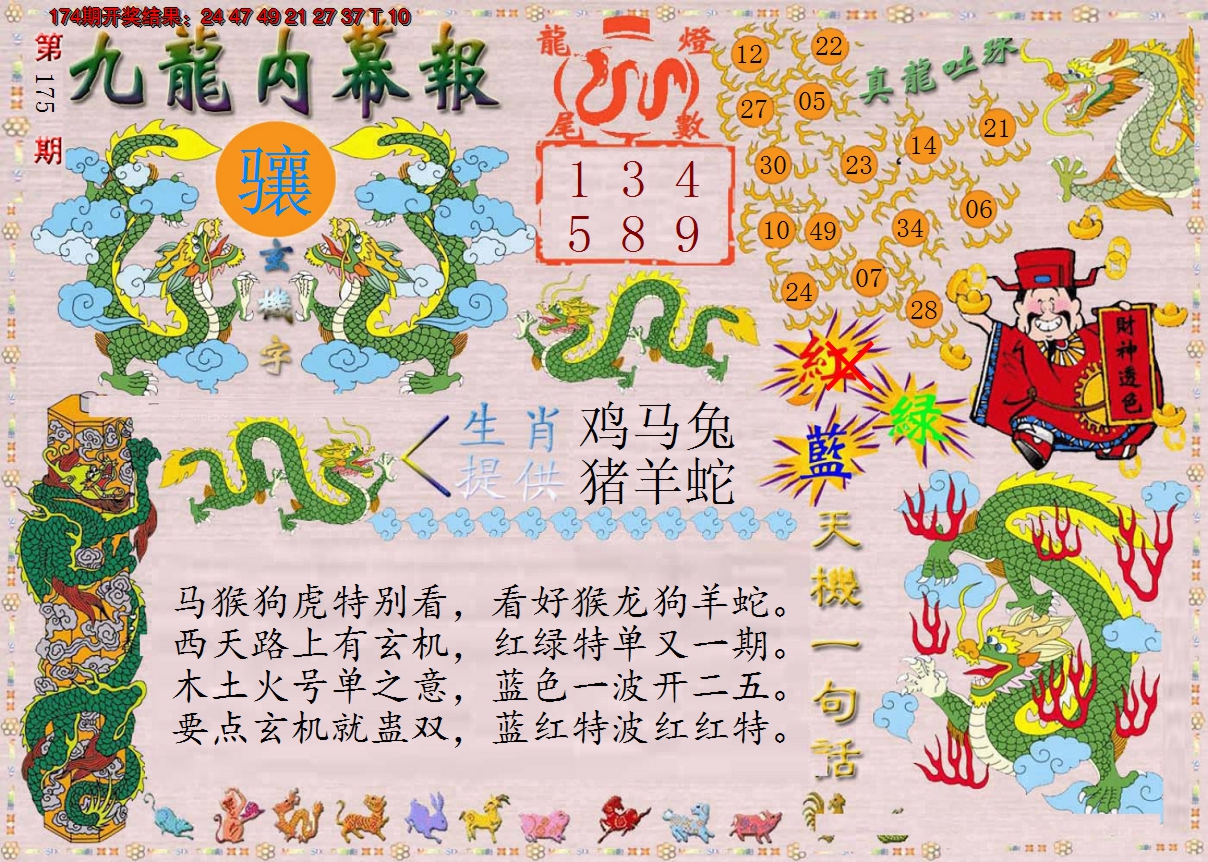 174期开奖结果：24 47 49 21 27 37 T 10
第175期
九龍内幕報
骧
玄機字
龍燈尾數
1 3 4
5 8 9
真龍吐珠
12 22
27 05
14 21
30 23
06
10 49 34
24 07
28
紅
绿
藍
財神透色
生肖提供
鸡马兔
猪羊蛇
马猴狗虎特别看，看好猴龙狗羊蛇。
西天路上有玄机，红绿特单又一期。
木土火号单之意，蓝色一波开二五。
要点玄机就蛊双，蓝红特波红红特。
天機一句话